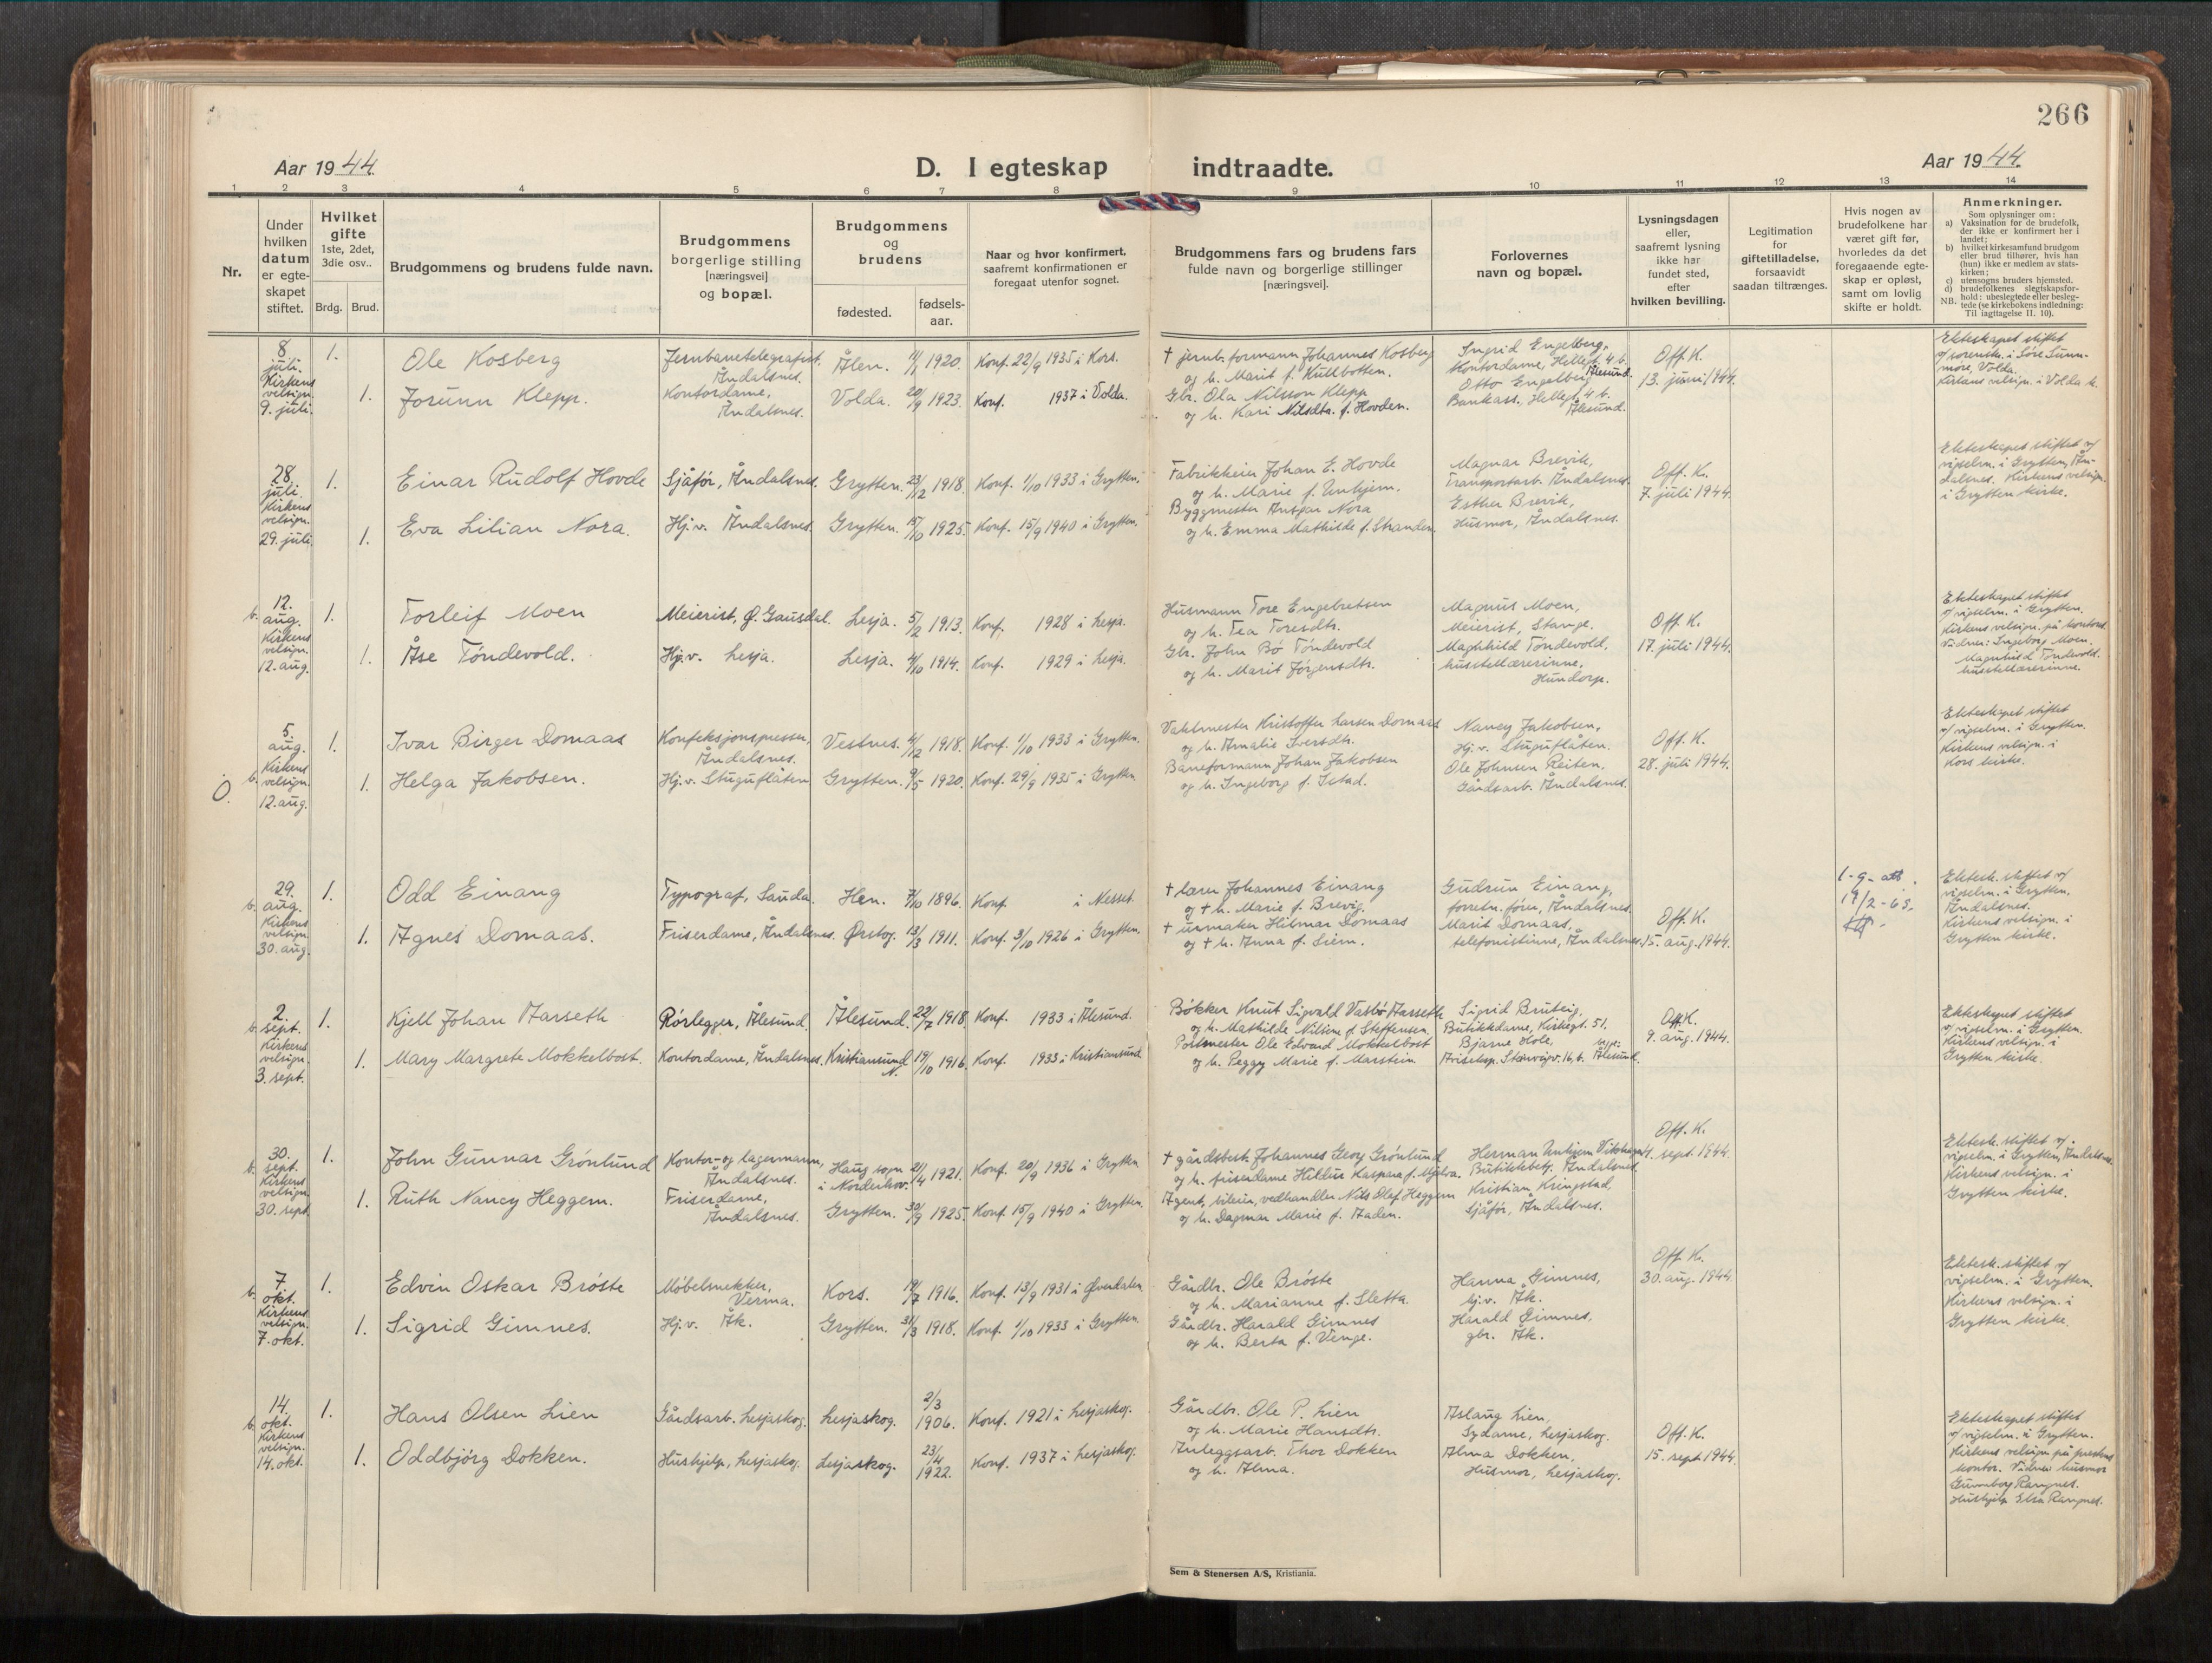 266
Aar 1944.
D. I egteskap indtraadte.
Aar 1944.
1 2 3 4 5 6 7 8 9 10 11 12 13 14
Nr.
Under hvilken datum er egte-skapet stiftet.
Hvilket gifte 1ste, 2det, 3die osv..
Brdg. Brud.
Brudgommens og brudens fulde navn.
Brudgommens borgerlige stilling [næringsvei] og bopæl.
Brudgommens og brudens
fødested.
fødsels-aar.
Naar og hvor konfirmert, saafremt konfirmationen er foregaat utenfor sognet.
Brudgommens fars og brudens fars fulde navn og borgerlige stillinger [næringsvei].
Forlovernes navn og bopæl.
Lysningsdagen eller, saafremt lysning ikke har fundet sted, efter hvilken bevilling.
Legitimation for giftetilladelse, forsaavidt saadan tiltrænges.
Hvis nogen av brudefolkene har været gift før, hvorledes da det foregaaende egte-skap er opløst, samt om lovlig skifte er holdt.
Anmerkninger.
Som oplysninger om:
a) Vaksination for de brudefolk, der ikke er konfirmert her i landet;
b) hvilket kirkesamfund brudgom eller brud tilhører, hvis han (hun) ikke er medlem av stats-kirken;
c) utensogns bruders hjemsted.
d) brudefolkenes slegtskapsfor-hold: ubeslegtede eller besleg-tede (se kirkebokens indledning:
NB. Til iagttagelse II. 10).
8. juli. Kirkens velsign. 9. juli.
1. Ole Kosberg
Jernbanetelegrafist. Åndalsnes.
Ålen. 1920. Konf. 22/9 1935 i Kors.
† jernb. formann Johannes Kosberg
og h. Marit f. Kullbotten.
Ingrid Engelberg.
Kontordame, Hellegt. 4 b. Ålesund.
Off. K.
13. juni 1944.
Ekteskapet stiftet
v/ sorenskr. i Søre Sunn-
møre, Volda.
Kirkens velsign. i Volda k.
1. Jorunn Klepp.
Kontordame, Åndalsnes.
Volda. 20/9 1923. Konf. 1937 i Volda.
Gbr. Ola Nilsson Klepp
og h. Kari Nilsdtr. f. Hovden.
Otto Engelberg
Bankass., Hellegt. 4 b. Ålesund.
28. juli. Kirkens velsign. 29. juli
1. Einar Rudolf Hovde
Sjåfør, Åndalsnes.
Grytten. 23/12 1918. Konf. 1/10 1933 i Grytten.
Fabrikkeier Johan E. Hovde
og h. Marie f. Unhjem.
Magnar Brevik,
Transportarb. Åndalsnes.
Off. K.
7. juli 1944.
Ekteskapet stiftet v/
vigselm. i Grytten, Ån-
dalsnes. Kirkens velsign.
i Grytten kirke.
1. Eva Lilian Nora.
Hj.v. Åndalsnes.
Grytten. 15/10 1925. Konf. 15/9 1940 i Grytten.
Byggmester Ansgar Nora
og h. Emma Mathilde f. Stranden.
Esther Brevik,
Husmor, Åndalsnes.
b. 12. aug. Kirkens velsign. 12. aug.
1. Torleif Moen
Meierist, Ø. Gausdal.
Lesja. 5/2 1913. Konf. 1928 i Lesja.
Husmann Tore Engebretsen
og h. Tea Toresdtr.
Magnus Moen,
Meierist, Stange.
Off. K.
17. juli 1944.
Ekteskapet stiftet
v/ vigselm. i Grytten.
Kirkens velsign. på kontoret.
Vidner: Ingeborg Moen.
Magnhild Tøndevold.
husstellærerinne.
1. Åse Tøndevold.
Hj.v. Lesja.
Lesja. 4/10 1914. Konf. 1929 i Lesja.
Gbr. John Bø Tøndevold
og h. Marit Jørgensdtr.
Maghhild Tøndevold,
husstellærerinne,
Hundorp.
5. aug. Kirkens velsign. 12. aug.
1. Ivar Birger Domaas
Konfeksjonspresser, Åndalsnes.
Vestnes. 4/12 1918. Konf. 1/10 1933 i Grytten.
Vaktmester Kristoffer Larsen Domaas
og h. Amalie Iversdtr.
Nancy Jakobsen,
Hj.v. Stuguflåten.
Off. K.
28. juli 1944.
Ekteskapet stiftet
v/ vigselm. i Grytten.
Kirkens velsign. i
Kors kirke.
Ö. b.
1. Helga Jakobsen.
Hj.v. Stuguflåten
Grytten. 9/5 1920. Konf. 29/9 1935 i Grytten
Baneformann Johan Jakobsen
og h. Ingeborg f. Istad.
Ole Johnsen Reiten,
Gårdsarb. Åndalsnes.
b. 29. aug. Kirkens velsign. 30. aug.
1. Odd Einang
Typograf, Sauda.
Hen. 7/10 1896. Konf. i Nesset.
† lærer Johannes Einang
og † h. Marie f. Brevig.
Gudrun Einang,
forretn. fører, Åndalsnes.
Off. K.
15. aug. 1944.
1-g. att.
19/2-65.
Ektesk. stiftet v/
vigselm. i Grytten.
Åndalsnes.
Kirkens velsign. i
Grytten kirke.
1. Agnes Domaas.
Friserdame, Åndalsnes.
Ørskog. 13/3 1911. Konf. 3/10 1926 i Grytten.
† urmaker Hilmar Domaas
og † h. Anna f. Siem.
Marit Domaas,
telefonistinne, Åndalsnes.
b. 2. sept. Kirkens velsign. 3. sept.
1. Kjell Johan Aarseth
Rørlegger, Ålesund.
Ålesund. 22/7 1918. Konf. 1933 i Ålesund.
Bøkker Knut Sigvald Vasbø Aarseth
og h. Mathilde Nilsine f. Steffensen.
Sigrid Bruteig,
Butikkdame, Kirkegt. 51.
Off. K.
9. aug. 1944.
Ekteskapet stiftet
v/ vigselm. i Grytten.
Kirkens velsign. i
Grytten kirke.
1. Mary Margrete Mokkelbost.
Kontordame, Åndalsnes.
Kristiansund N. 19/10 1916. Konf. 1933 i Kristiansund
Postmester Ole Edvard Mokkelbost
og h. Peggy Marie f. Marstein
Bjarne Hole,
Storvigv. 16, b. Ålesund.
b. 30. sept. Kirkens velsign. 30. sept
1. John Gunnar Grønlund
Kontor- og lagermann, Åndalsnes.
Haug sogn i Norderhov. 21/4 1921. Konf. 20/9 1936 i Grytten
† gårdsbest. Johannes Georg Grønlund
og h. friserdame Hildur Kaspara f. Mjelva.
Herman Unhjem
Butikkbetj. Åndalsnes
Off. K.
sept. 1944.
Ektesk. stiftet v/
vigselm. i Grytten, Åndalsnes.
Kirkens velsign. i
Grytten kirke.
1. Ruth Nancy Heggem.
Friserdame, Åndalsnes.
Grytten. 30/9 1925. Konf. 15/9 1940 i Grytten.
Agent, bileier, vedhandler Nils Olaf Heggem
og h. Dagmar Marie f. Aaden.
Kristian Kringstad,
Sjåfør, Åndalsnes.
b. 7. okt. Kirkens velsign. 7. okt.
1. Edvin Oskar Brøste
Møbelsnekker, Verma.
Kors. 19/7 1916. Konf. 13/9 1931 i Øverdalen
Gårdbr. Ole Brøste
og h. Marianne f. Sletta.
Hanna Gimnes,
hj.v. Åk.
Off. K.
30. aug. 1944.
Ektesk. stiftet v/
vigselm. i Grytten.
Kirkens velsign. i
Grytten kirke.
1. Sigrid Gimnes.
Hj.v. Åk.
Grytten. 31/3 1918. Konf. 1/10 1933 i Grytten.
Gårdbr. Harald Gimnes
og h. Berta f. Venge.
Harald Gimnes,
gbr. Åk.
b. 14. okt. Kirkens velsign. 14. okt.
1. Hans Olsen Lien
Gårdsarb. Lesjaskog.
Lesjaskog. 2/3 1906. Konf. 1921 i Lesjaskog.
Gårdbr. Ole P. Lien
og h. Marie Hansdtr.
Aslaug Lien,
Sydame, Lesjaskog.
Off. K.
15. sept. 1944.
Ekteskapet stiftet
v/ vigselm. i Grytten.
Kirkens velsign. på prestens
kontor. Vidner husmor
Gunnborg Rangnes.
Hushjelp Elsa Rangnes.
1. Oddbjørg Dokken.
Hushjelp, Lesjaskog.
Lesjaskog. 23/4 1922. Konf. 1937 i Lesjaskog.
Anleggsarb. Thor Dokken
og h. Alma.
Alma Dokken,
Husmor, Lesjaskog.
Sem & Stenersen A/S, Kristiania.